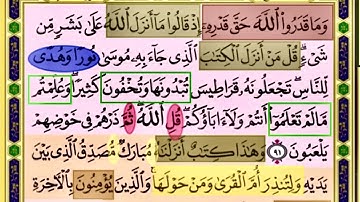 وَمَا قَدَرُوا۟ ٱللَّهَ حَقَّ قَدْرِهِۦٓ إِذْ قَالُوا۟ مَآ أَنزَلَ ٱللَّهُ عَلَىٰ بَشَرٍ مِّن
شَىْءٍ ۗ قُلْ مَنْ أَنزَلَ ٱلْكِتَٰبَ ٱلَّذِى جَآءَ بِهِۦ مُوسَىٰ نُورًا وَهُدًى
لِّلنَّاسِ ۖ تَجْعَلُونَهُۥ قَرَاطِيسَ تُبْدُونَهَا وَتُخْفُونَ كَثِيرًا ۖ وَعُلِّمْتُم
مَّا لَمْ تَعْلَمُوٓا۟ أَنتُمْ وَلَآ ءَابَآؤُكُمْ ۖ قُلِ ٱللَّهُ ۖ ثُمَّ ذَرْهُمْ فِى خَوْضِهِمْ
يَلْعَبُونَ ٩١ وَهَٰذَا كِتَٰبٌ أَنزَلْنَٰهُ مُبَارَكٌ مُّصَدِّقُ ٱلَّذِى بَيْنَ
يَدَيْهِ وَلِتُنذِرَ أُمَّ ٱلْقُرَىٰ وَمَنْ حَوْلَهَا ۚ وَٱلَّذِينَ يُؤْمِنُونَ بِٱلْءَاخِرَةِ